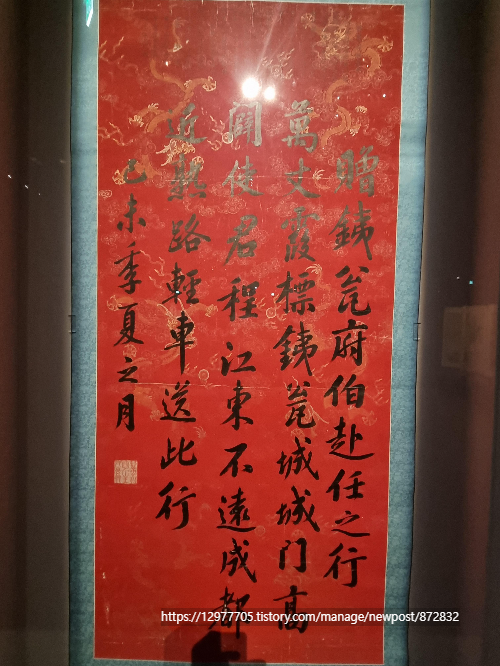 贈銕瓮府伯赴任之行
萬丈霞標銕瓮城城门高
開使君程江東不遠成都
近熟路輕車送此行
己未季夏之月
https://12977705.tistory.com/manage/newpost/872832